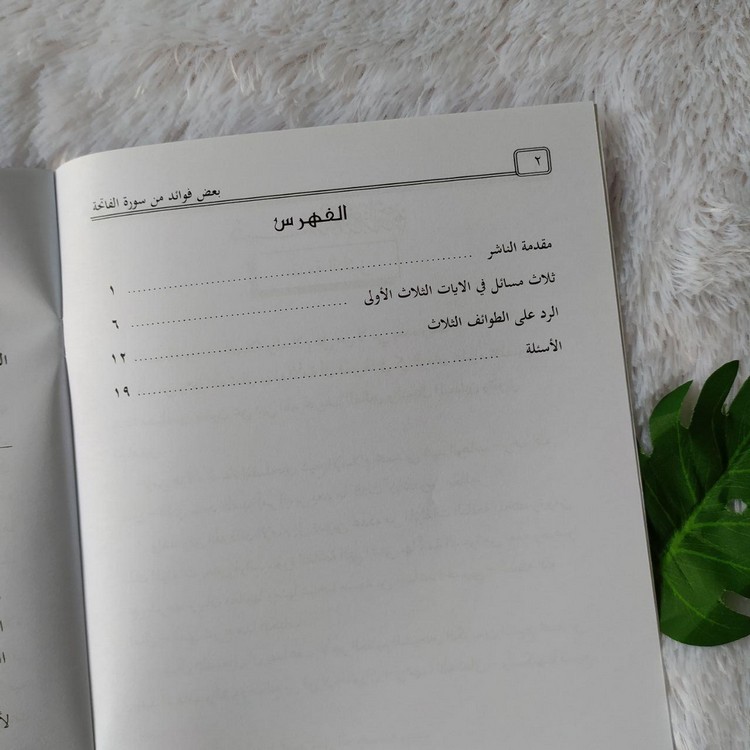 ٢
بعض فوائد من سورة الفاتحة
الفهرس
مقدمة الناشر ........ ١
ثلاث مسائل في الايات الثلاث الأولى ........ ٦
الرد على الطوائف الثلاث ........ ١٢
الأسئلة ........ ١٩